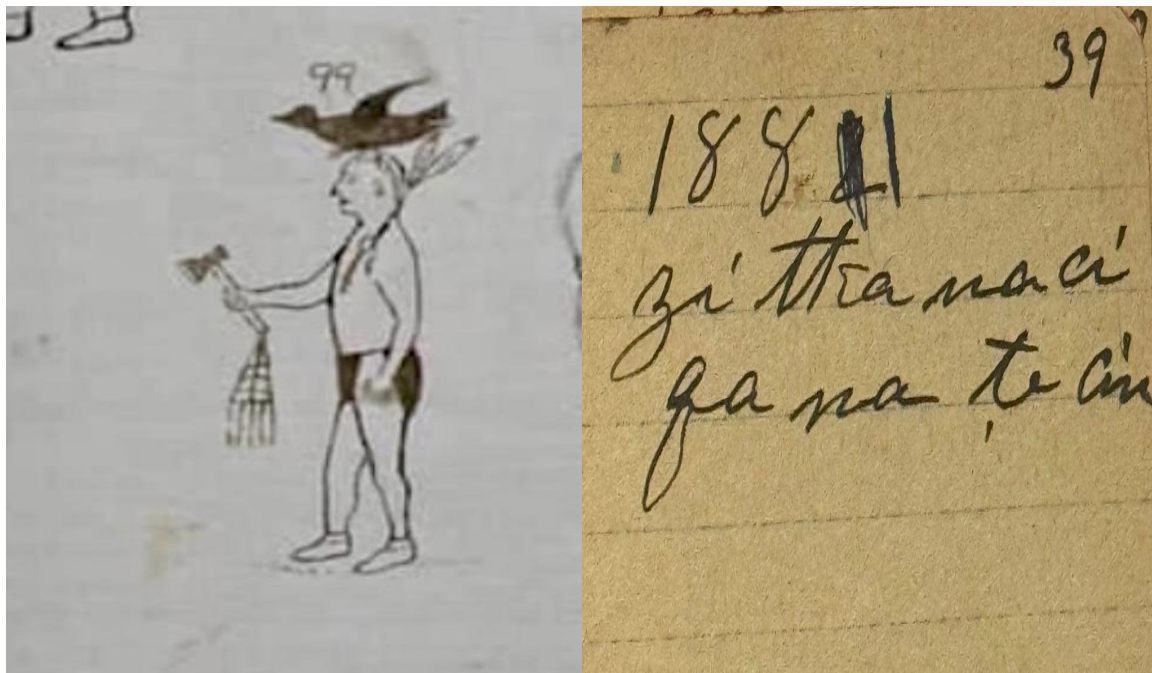 99
39
1881
zi tka na ci
qa na ṭe cin